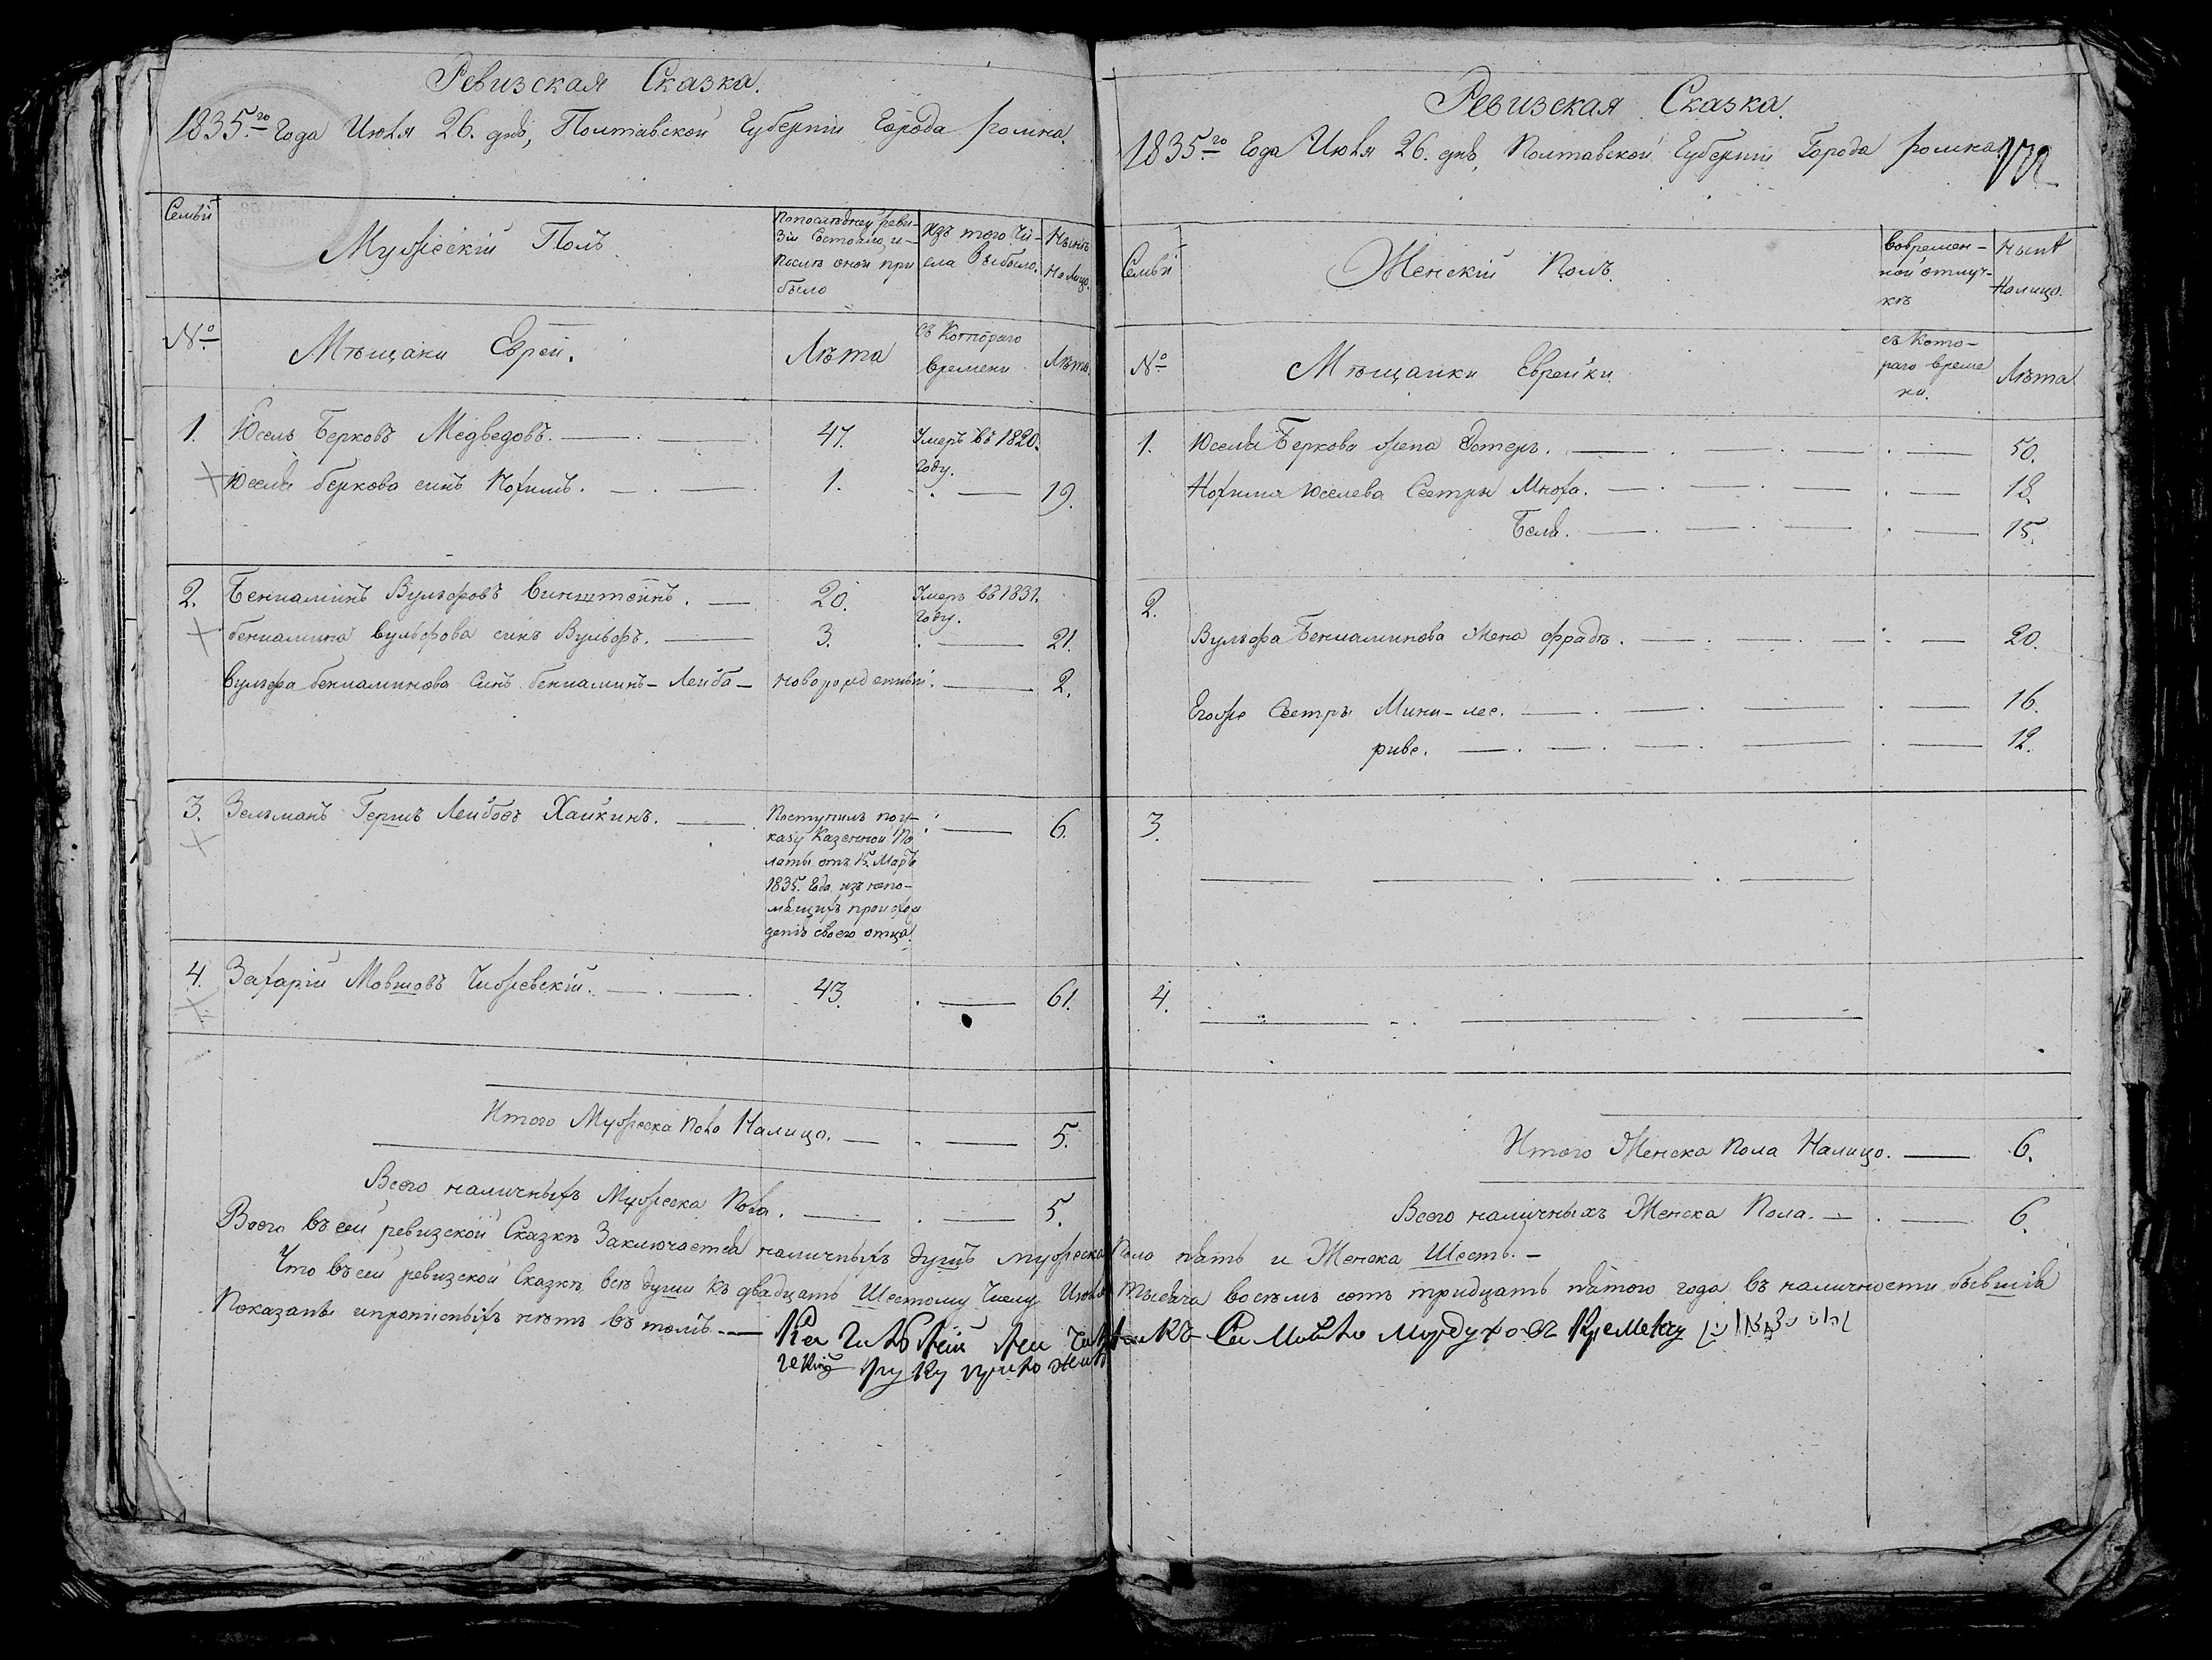 Ревизская Сказка.
1835.го Года Июля 26. дня, Полтавской Губернии Города Ромна.
Семьи
Мужескій Полъ.
По последней ревизіи состояло, и после оной прибыло
Изъ того числа выбыло.
Ныне на лицо.
№
Мѣщане Евреи.
Лѣта
съ Котораго времени
Лѣта.
1. Юсель Берковъ Медведовъ. 47. Умеръ въ 1820. году.
Юселя беркова синъ Нохимъ. 1. 19.
2. Бениаминъ Вульфовъ Винштейнъ. 20. Умеръ въ 1831. году.
бениамина вульфова синъ Вульфъ. 3. 21.
Вульфа бениаминова Синъ бениаминъ-Лейба- новорожденный. 2.
3. Зельманъ Гершъ Лейбовъ Хайкинъ. 6.
Поступилъ по у-
казу Казенной Па
латы отъ 15. Марта
1835. Года изъ непо-
мнящихъ происхож
денія своего отца.
4. Захарій Мовшовъ Чижевскій. 43. 61.
Итого Мужеска пола Налицо. 5.
Всего наличныхъ Мужеска Пола. 5.
Ревизская Сказка.
1835.го Года Июля 26. дня, Полтавской Губерніи Города Ромна
Семьи
Женскій Полъ.
Вовремен-
ной отлуч-
кѣ
Нынѣ
Налицо.
№
Мѣщанки Еврейки.
съ Кото-
раго време
ни.
Лѣта
1. Юселя Беркова жена Эстеръ. 50.
Нохима Юселева Сестры Мноха. 18.
Беля. 15.
2.
Вульфа Бениаминова Жена фрадъ. 20.
Егоже Сестры Мини-лее. 16.
риве. 12.
3.
4.
Итого Женска Пола Налицо. 6.
Всего наличныхъ Женска Пола. 6.
Всего въ сей ревизской Сказкѣ Заключается наличныхъ душъ мужеска Пола пять и Женска Шесть.-
Что въ сей ревизской Сказкѣ, всѣ души къ двадцать Шестому Числу Июля Тысяча восемь сотъ тридцать пятого года въ наличности бывшія
Показаны и прописныхъ нетъ въ томъ.-
Мордухов Кременчу
руку приложилъ